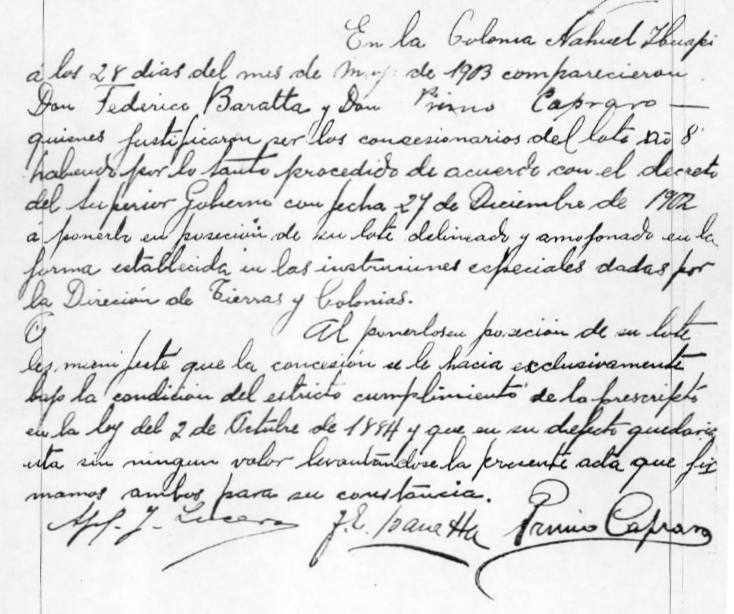 En la Colonia Nahuel Huapi
á los 28 dias del mes de de 1903 comparecieron
Don Federico Baratta y Don Primo Capraro —
quienes justificaron ser los concesionarios del lote No 8
habiendo por lo tanto procedido de acuerdo con el decreto
del Superior Gobierno con fecha 27 de Diciembre de 1902
á ponerlo en poseción de su lote delineado y amojonado en la
forma establecida en las instruciones especiales dadas por
la Direción de Tierras y Colonias.
Al ponerlos en poseción de su lote
les manifesté que la concesión se le hacia exclusivamente
bajo la condición del estricto cumplimiento de la prescripto
en la ley del 2 de Octubre de 1884 y que en su defecto quedaria
esta sin ningun valor levantándose la presente acta que fir
mamos ambos para su constancia.
J. Lucero F. E. Baratta Primo Capraro